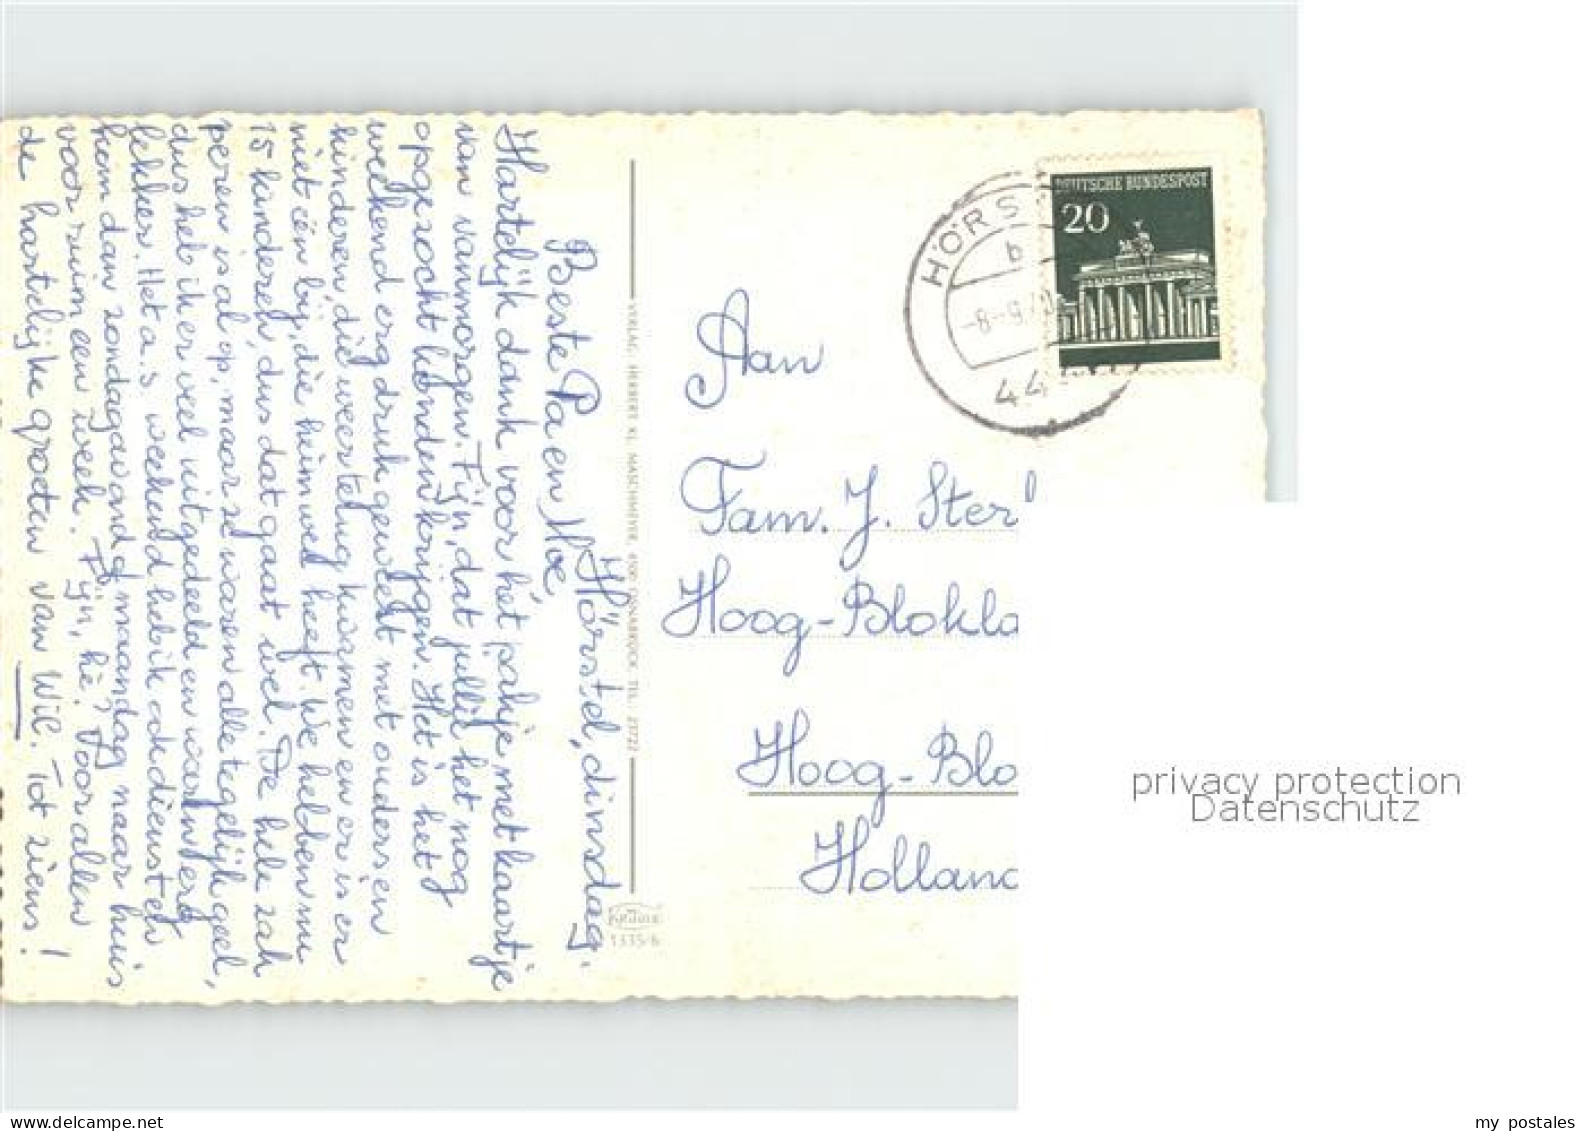 Hörstel, dinsdag.
Beste Pa en Moe,
Hartelijk dank voor het pakje met kaartje
van vanmorgen. Fijn, dat jullie het nog
opgezocht konden krijgen. Het is het
weekend erg druk geweest met ouders en
kinderen, die weer terug kwamen en er is er
niet één bij, die heimwee heeft. We hebben nu
15 kinderen, dus dat gaat wel. De hele zak
peren is al op, maar ze waren alle tegelijk geel,
dus heb ik er veel uitgedeeld en waren erg
lekker. Het a.s. weekend heb ik ook dienst en
kom dan zondagavond of maandag naar huis
voor ruim een week. Fijn, hè? Voor allen
de hartelijke groeten van Wil. Tot ziens!
VERLAG: HERBERT KL. MASCHMEYER, 4500 OSNABRÜCK, TEL. 23722
KRÜGER
1335/6
DEUTSCHE BUNDESPOST
20
HÖRS
b
-8.-9.70
44
Aan
Fam. J. Ster
Hoog-Blokla
Hoog-Blo
Holland
privacy protection
Datenschutz
my postales